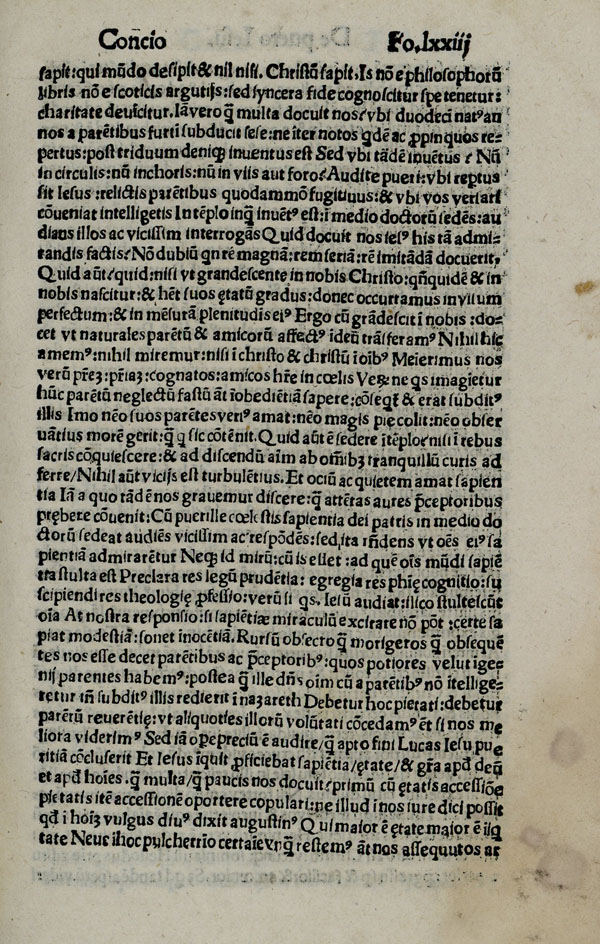 Concio Fo.lxxiij
sapit:qui mūdo desipit & nil nisi. Christū sapit. Is nō e philosophorū
libris nō e scoticis argutijs: sed syncera fide cognoscitur spe tenetur:
charitate deuicitur. Ia vero q̄ multa docuit nos? vbi duodeci natꝰ an
nos a parētibus furti subducit sese: ne iter notos qdē ac ꝓpin quos re-
pertus: post triduum deniqȝ inuentus est Sed vbi tādē inuētus? Nū
in circulis: nū in choris: nū in viis aut foro? Audite pueri: vbi reptus
sit Iesus: relictis parētibus quodammō fugitiuus: & vbi vos versari
cōueniat intelligetis In tēplo inq̄ inuētꝰ est: ī medio doctorū sedēs: au
diens illos ac vicissim interrogās Quid docuit nos iesꝰ his tā admi-
randis factis? Nō dubiū qn rē magnā: rem seriā: rē imitādā docuerit,
Quid aūt? quid: nisi vt grandescente in nobis Christo: qn̄quidē & in
nobis nascitur: & hēt suos ętatū gradus: donec occurramus in virum
perfectum: & in mēsurā plenitudis eiꝰ Ergo cū grādescit ī nobis: do-
cet vt naturales parētū & amicorū affectꝰ ī deū trāsferamꝰ Nihil hic
amemꝰ: nihil miremur: nisi ī christo & christū ī oībꝰ Memerimus nos
verū prēȝ: priaȝ: cognatos: amicos hr̄e in cœlis Veȝ ne qs imagietur
hūc parētū neglectū fastū āt īobediētiā sapere: cōseqt̄ & erat subditꝰ
illis Imo nēo suos parētes verꝰ amat: nēo magis pię colit: nēo obser
uātius morē gerit: q̄ q sic cōtēnit. Quid aūt ē sedere ī tēplo? nisi ī rebus
sacris cōquiescere: & ad discendū aīm ab omībȝ tranquillū curis ad
ferre/ Nihil aūt vicijs est turbulētius. Et ociū ac quietem amat sapien
tia Iā a quo tādē nos grauemur discere: q̄ attētas aures p̄ceptoribus
prębere cōuenit: Cū puer ille cœlestis sapientia dei patris in medio do
ctorū sedeat audiēs vicissim ac respōdēs: sed, ita rn̄dens vt oēs eiꝰ sa
pientiā admirarētur Neqȝ id mirū: cū is esset: ad quē oīs mūdi sapiē
tia stulta est Preclara res legū prudētia: egregia res phīę cognitio: su
scipiendi res theologię ꝓfessio: verū si qs. Iesū audiat: ilico stultescūt
oīa At nostra responsio: si sapiētiæ miraculū excitare nō pōt: certe sa
piat modestiā: sonet inocētiā. Rursū obsecro q̄ morigeros q̄ obsequē
tes nos esse decet parētibus ac p̄ceptoribꝰ: quos potiores velut ige-
nij parentes habemꝰ: postea q̄ ille dn̄s oīm cū a parētibꝰ nō ītellige-
retur tn̄ subditꝰ illis redierit ī nazareth Debetur hoc pietati: debetur
parētū reuerētię: vt aliquoties illorū volūtati cōcedamꝰ ēt si nos me
liora viderimꝰ Sed iā ope preciū ē audire/ q̄ apto fini Lucas Iesu pue
ritiā cōcluserit Et Iesus iquit ꝓficiebat sapiētia/ ętate/ & grā apd̄ deū
et apd̄ hoīes. q̄ multa/ q̄ paucis nos docuit? primū cū ętatis accessiōe
pietatis itē accessionē oportere copulari: ne illud ī nos iure dici possit
qd̄ ī hoīȝ vulgus diuꝰ dixit augustinꝰ Qui maior ē ętate maior ē iiq
tate Neue ī hoc pulcherrīo certaīe vnq̄ restemꝰ āt nos assequutos ar